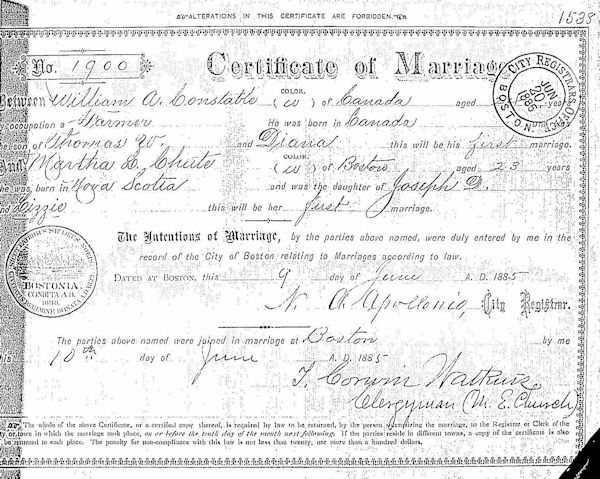 ALTERATIONS IN THIS CERTIFICATE ARE FORBIDDEN.
1533
No. 1900 Certificate of Marriage
CITY REGISTRAR'S OFFICE BOSTON JUN 20 1885
Between William A. Constable COLOR. (W) of Canada aged years
occupation a Farmer He was born in Canada
person of Thomas W. and Diana this will be his first marriage.
And Martha L. Chute COLOR. (W) of Boston aged 23 years
he was born in Nova Scotia and was the daughter of Joseph D.
and Lizzie this will be her first marriage.
The Intentions of Marriage, by the parties above named, were duly entered by me in the
record of the City of Boston relating to Marriages according to law.
BOSTONIA.
CONDITA A.D.
1630.
DATED AT BOSTON, this 9 day of June A. D. 1885
N. A. Apollonio, City Registrar.
The parties above named were joined in marriage at Boston by me
his 10th day of June A. D. 1885
T. Corwin Watkins
Clergyman (M. E. Church)
The whole of the above Certificate, or a certified copy thereof, is required by law to be returned, by the person solemnizing the marriage, to the Registrar or Clerk of the
or town in which the marriage took place, on or before the tenth day of the month next following. If the parties reside in different towns, a copy of the certificate is also
to each place. The penalty for non-compliance with this law is not less than twenty, nor more than a hundred dollars.